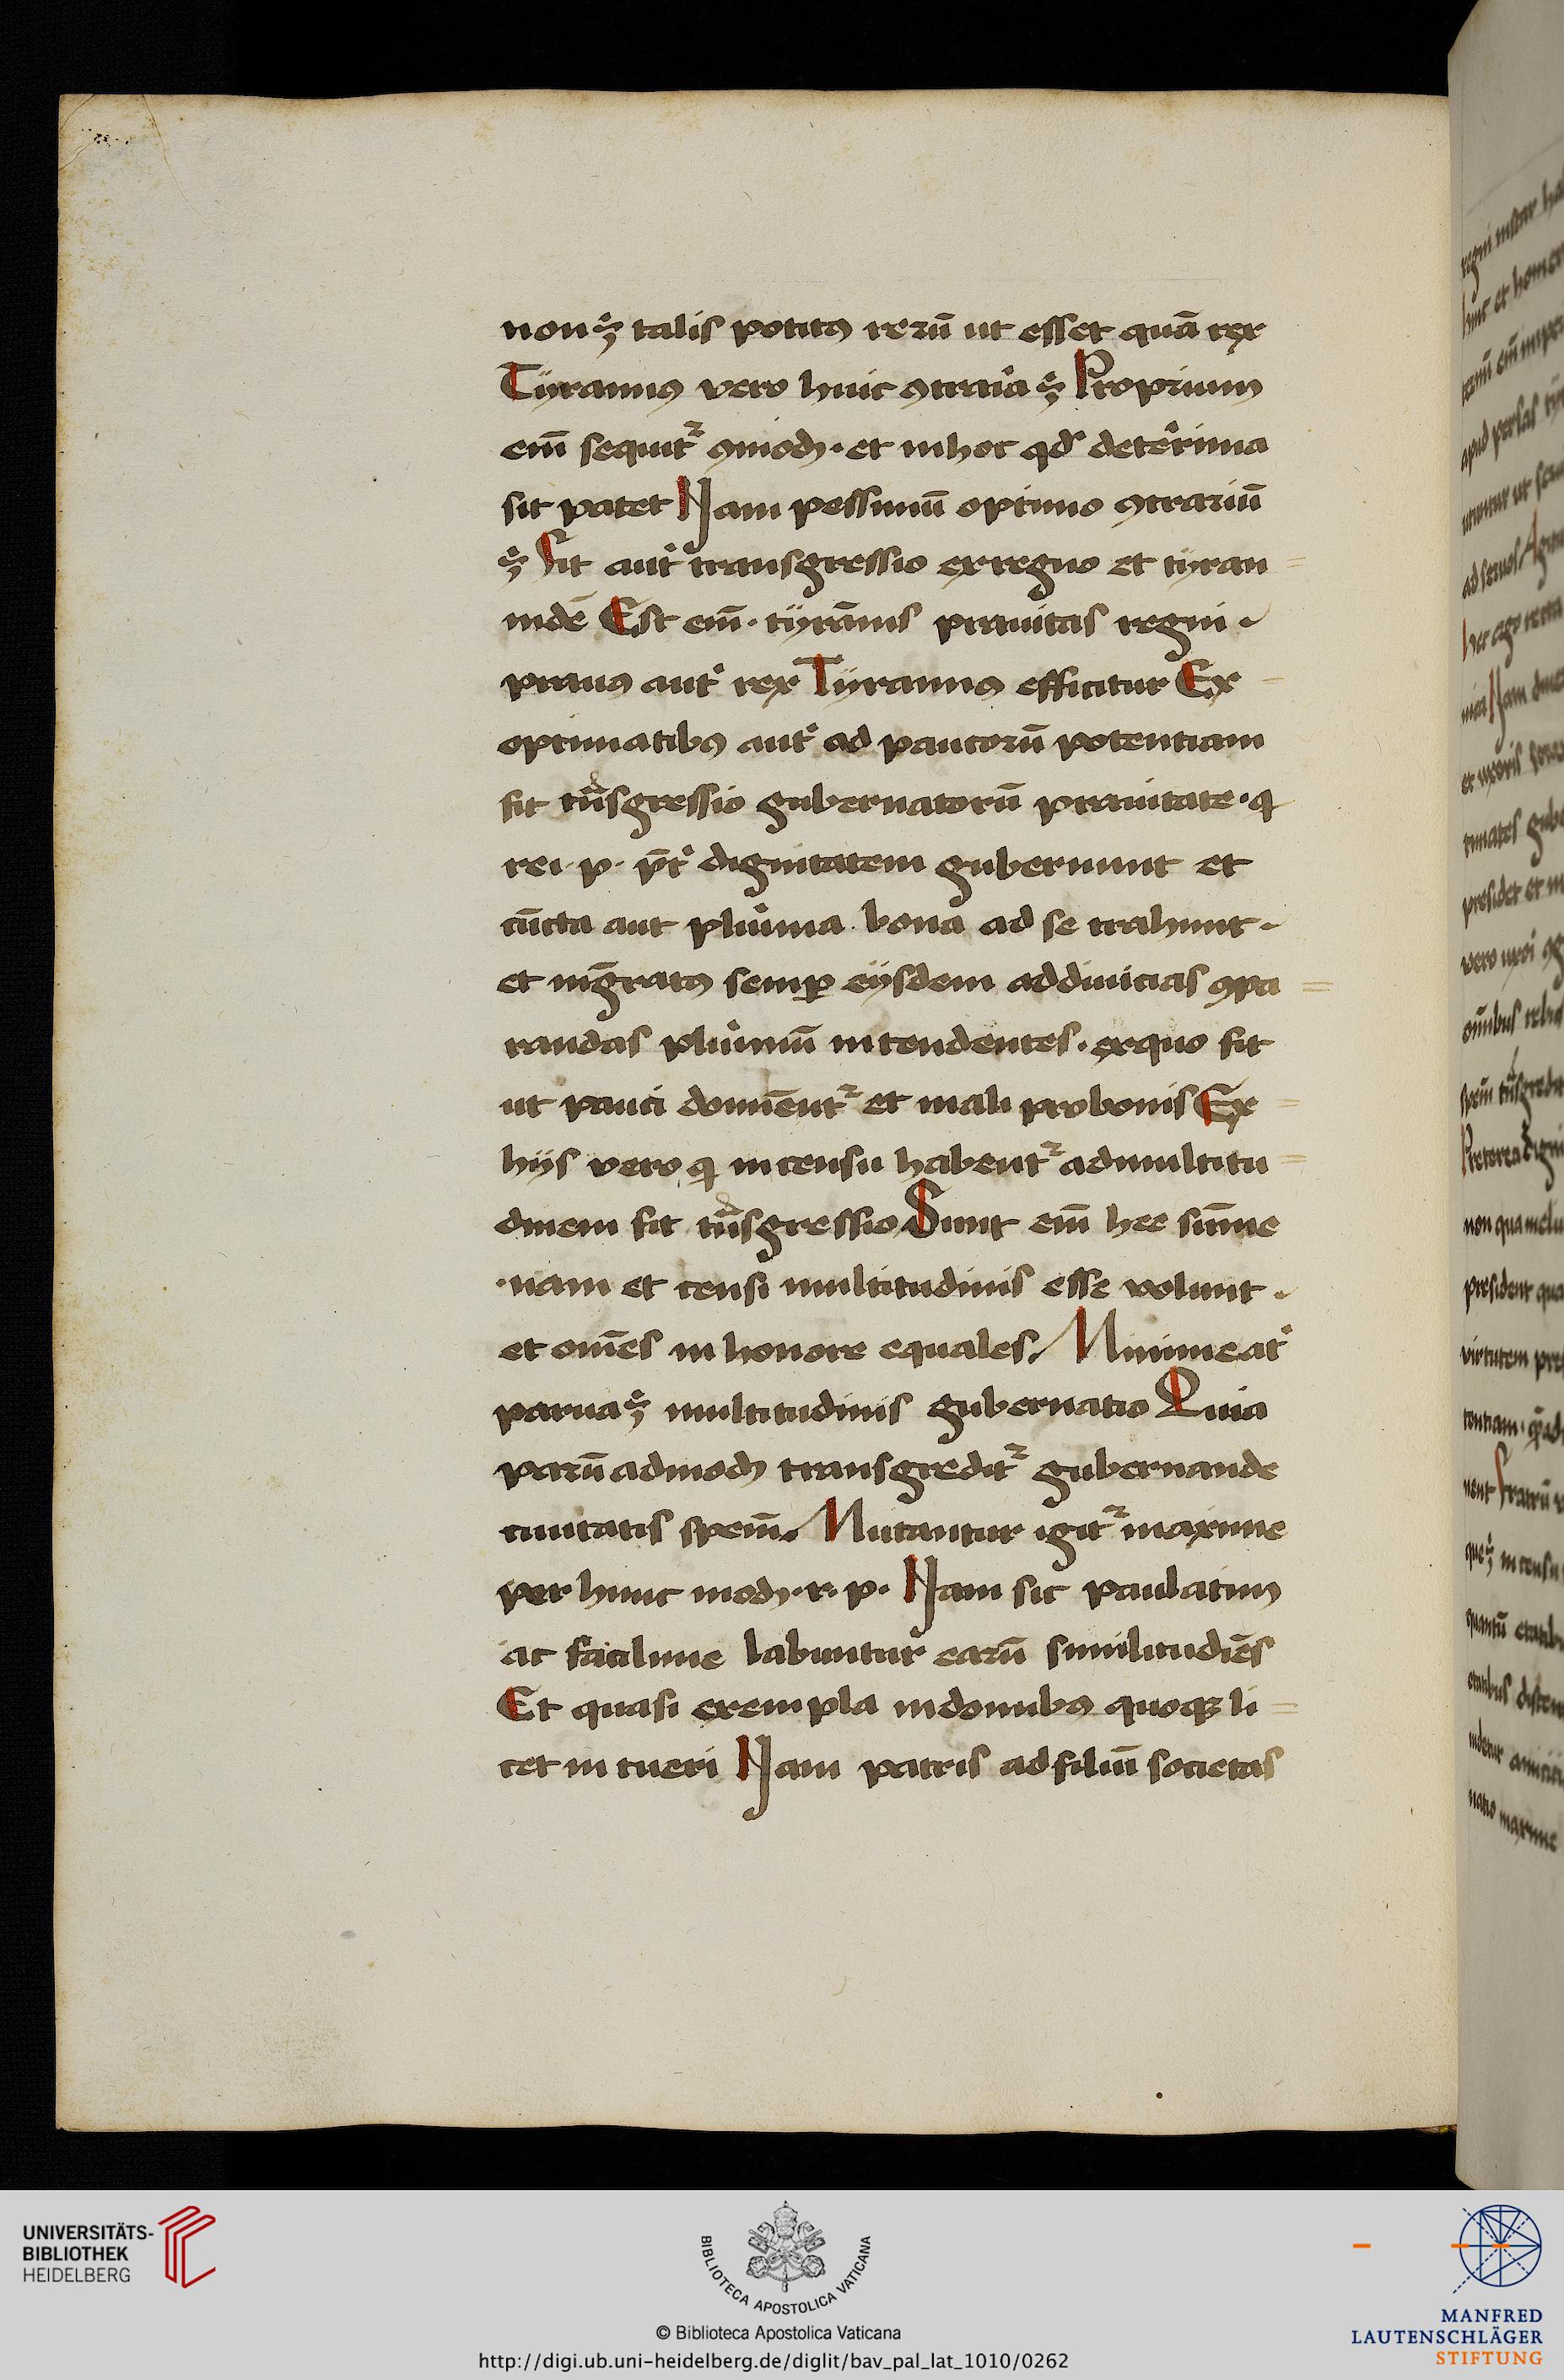 nonꝫ talis potitꝰ rerū ut esset quā rex
Tÿrannꝰ vero huic ꝯtraia ꝫ Proprium
em̄ sequit᷑ ꝯmodȝ · et inhoc qd᷑ deteri᷑ma
sit patet Nam pessimū optimo ꝯtrariū
ꝫ Sit aut᷑ transgressio exregno et tÿran
nidē Est em̄ · tÿrānis prauitas regni ·
prauꝰ aut᷑ rex Tÿrannꝰ efficitur Ex
optimatibꝰ aut᷑ ad paucorū potentiam
fit trāsgressio gubernatorū prauitate · q
rei · p · p̄t᷑ dignitatem gubernunt et
cūcta aut plu᷑ima bona ad se trahunt ·
et mḡratꝰ semꝑ eÿsdem addiuicias ꝯpa
randas plu᷑imū intendentes · exquo fit
ut pauci domēnt᷑ et mali probonis Ex
hÿs vero q incensu habent᷑ admultitu
dinem fit trāsgressio Sunt em̄ hee sūme
· nam et censi multitudinis esse volunt ·
et om̄es in honore equales / Minimeat᷑
paruaꝫ multitudinis gubernatio Quia
parū admodȝ transgredit᷑ gubernande
ciuitatis spem̄ / Mutantur igit᷑ maxime
per hunc modȝ · r · p · Nam sic paulatim
ac facilime labuntur earū similitudiēs
Et quasi exempla indomibꝰ quoqȝ li
cet in tueri Nam patris adfiliū societas
UNIVERSITÄTS-
BIBLIOTHEK
HEIDELBERG
BIBLIOTECA APOSTOLICA VATICANA
© Biblioteca Apostolica Vaticana
http://digi.ub.uni-heidelberg.de/diglit/bav_pal_lat_1010/0262
MANFRED
LAUTENSCHLÄGER
STIFTUNG